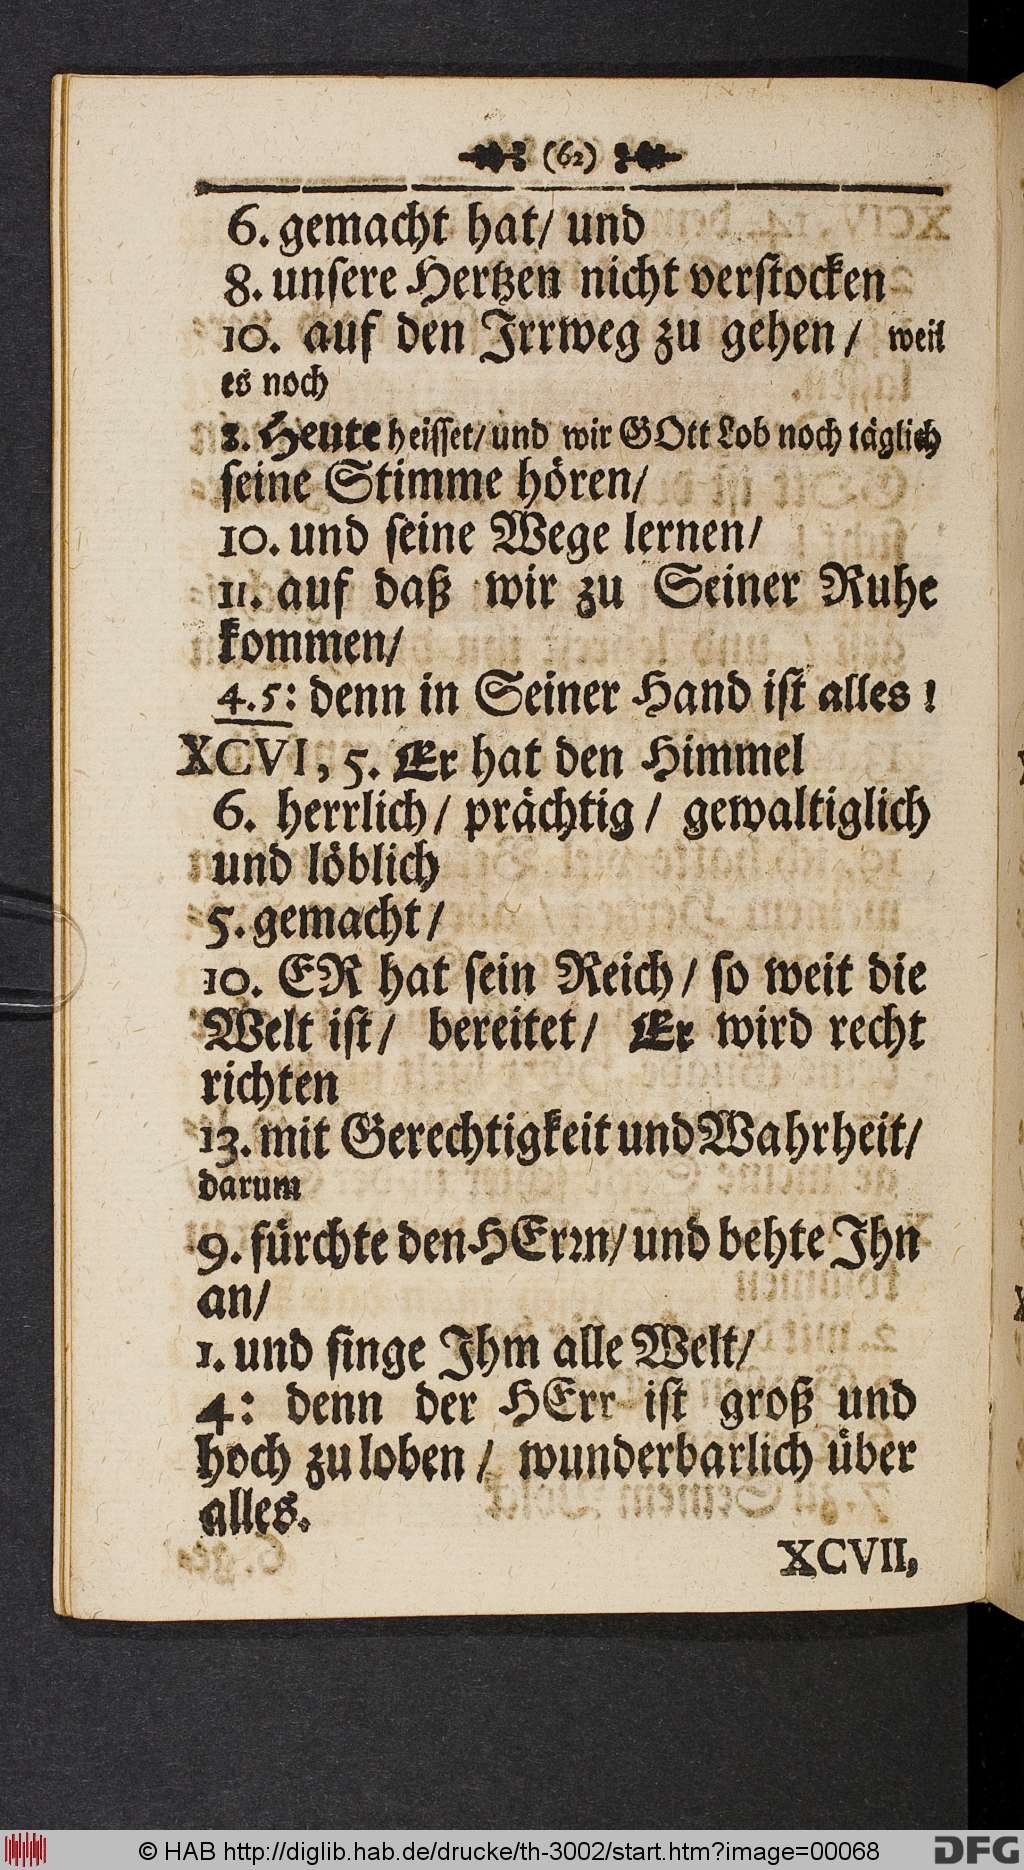 (62)
6. gemacht hat/ und
8. unſere Hertzen nicht verſtocken
10. auf den Jrrweg zu gehen/ weil
es noch
8. Heute heiſſet/ und wir GOtt Lob noch täglich
ſeine Stimme hören/
10. und ſeine Wege lernen/
11. auf daß wir zu Seiner Ruhe
kommen/
4. 5: denn in Seiner Hand iſt alles!
XCVI, 5. Er hat den Himmel
6. herrlich/ prächtig/ gewaltiglich
und löblich
5. gemacht/
10. ER hat ſein Reich/ ſo weit die
Welt iſt/ bereitet/ Er wird recht
richten
13. mit Gerechtigkeit und Wahrheit/
darum
9. fürchte den HErꝛn/ und behte Jhn
an/
1. und ſinge Jhm alle Welt/
4: denn der HErr iſt groß und
hoch zu loben/ wunderbarlich über
alles.
XCVII,
© HAB http://diglib.hab.de/drucke/th-3002/start.htm?image=00068
DFG